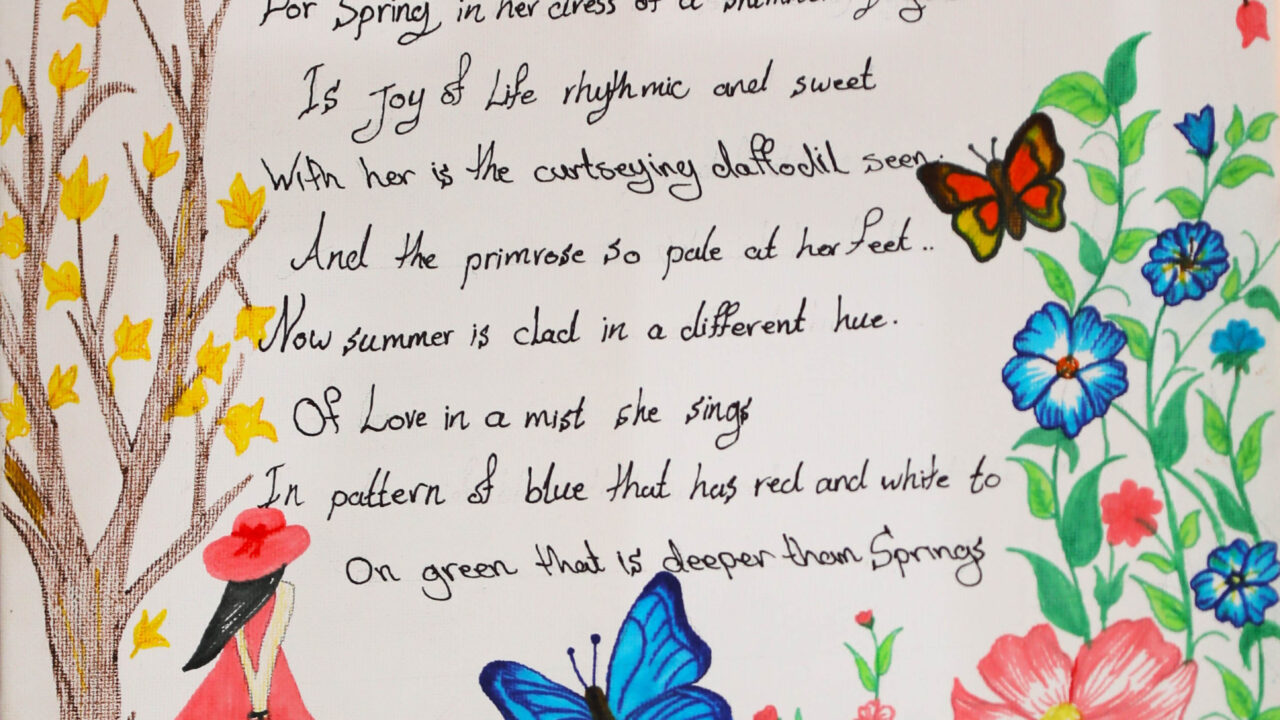 For Spring in her dress of a
Is Joy of Life rhythmic and sweet
With her is the curtseying daffodil seen.
And the primrose so pale at her feet..
Now summer is clad in a different hue.
Of Love in a mist she sings
In pattern of blue that has red and white to
On green that is deeper than Springs